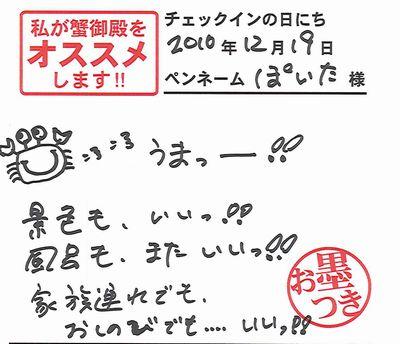 私が蟹御殿を
オススメ
します!!
チェックインの日にち
2010年12月19日
ペンネーム ぽいた 様
うまっー!!
景色も、いいっ!!
風呂も、またいいっ!!
家族連れでも、
おしのびでも‥‥いいっ!!
お墨つき